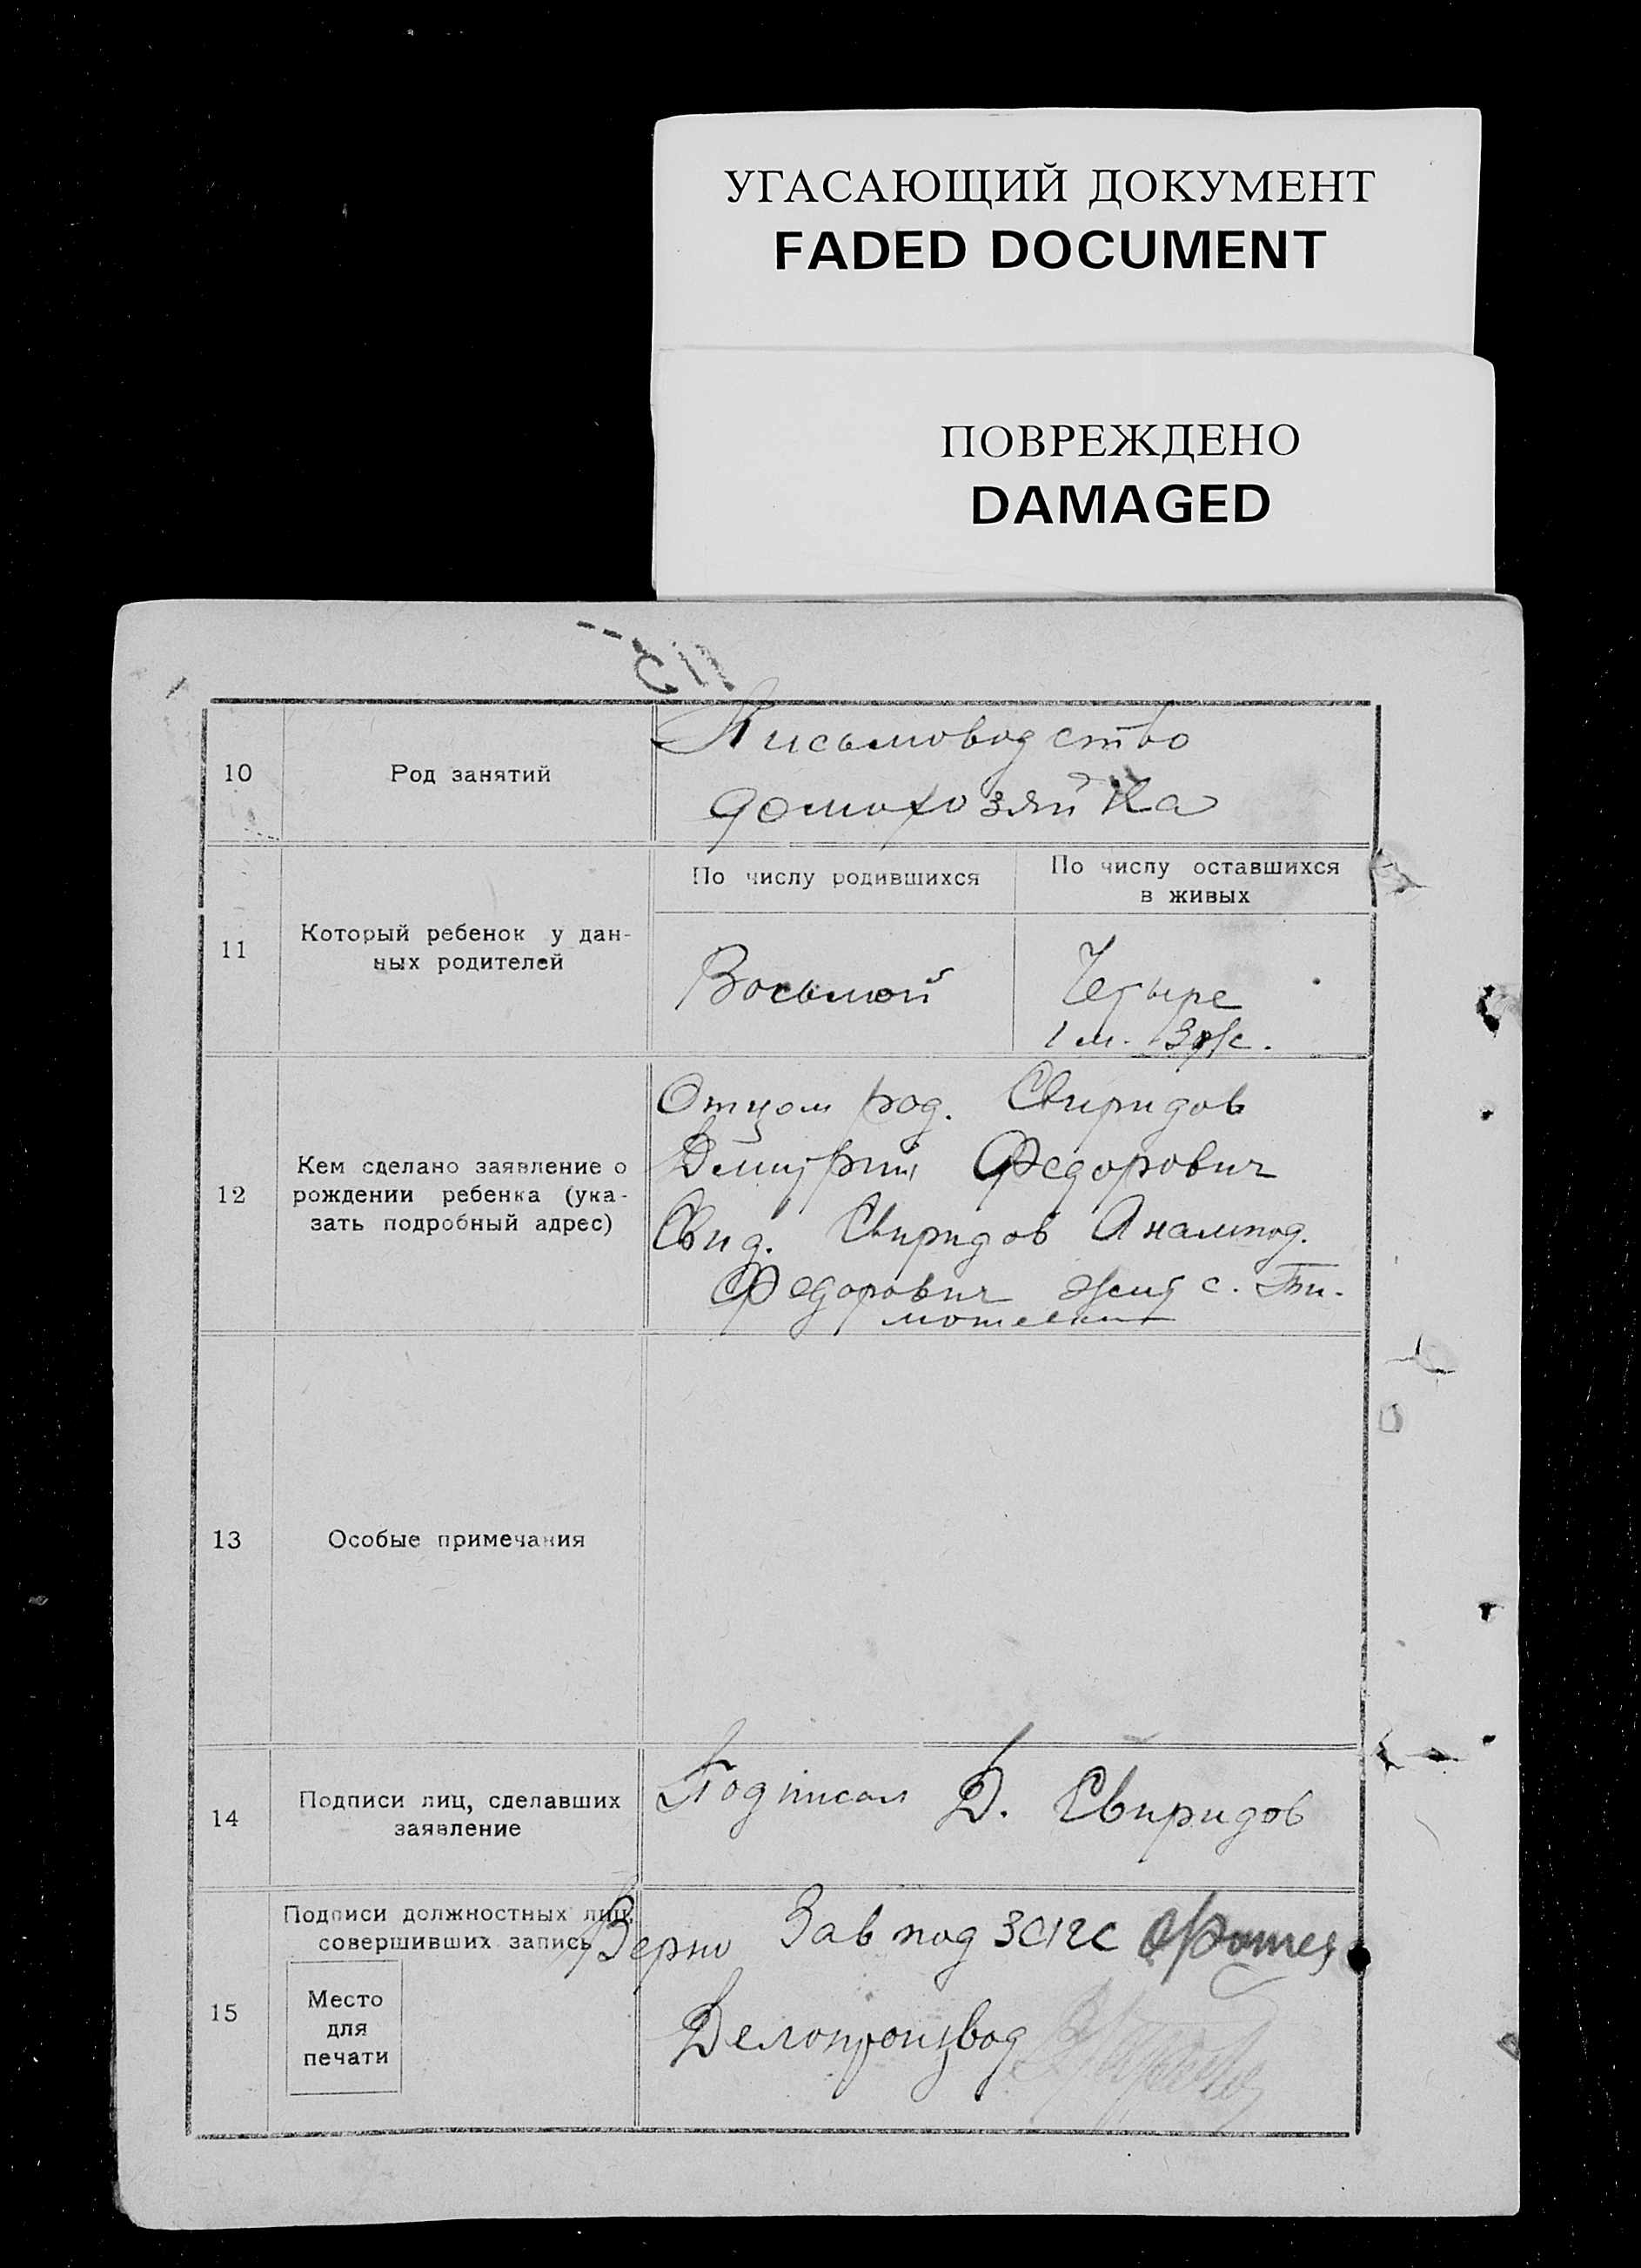 УГАСАЮЩИЙ ДОКУМЕНТ
FADED DOCUMENT
ПОВРЕЖДЕНО
DAMAGED
10
Род занятий
Письмоводство
домохозяйка
11
Который ребенок у дан-
ных родителей
По числу родившихся
По числу оставшихся
в живых
Восьмой
Четыре
1 м. 3 ж.
12
Кем сделано заявление о
рождении ребенка (ука-
зать подробный адрес)
Отцом род. Свиридов
Дмитрий Федорович
Свид. Свиридов
Федорович жит с. Ти-
13
Особые примечания
14
Подписи лиц, сделавших
заявление
Подписал Д. Свиридов
15
Подписи должностных лиц,
совершивших запись
Место
для
печати
Верно Зав под ЗАГС
Делопроизвод